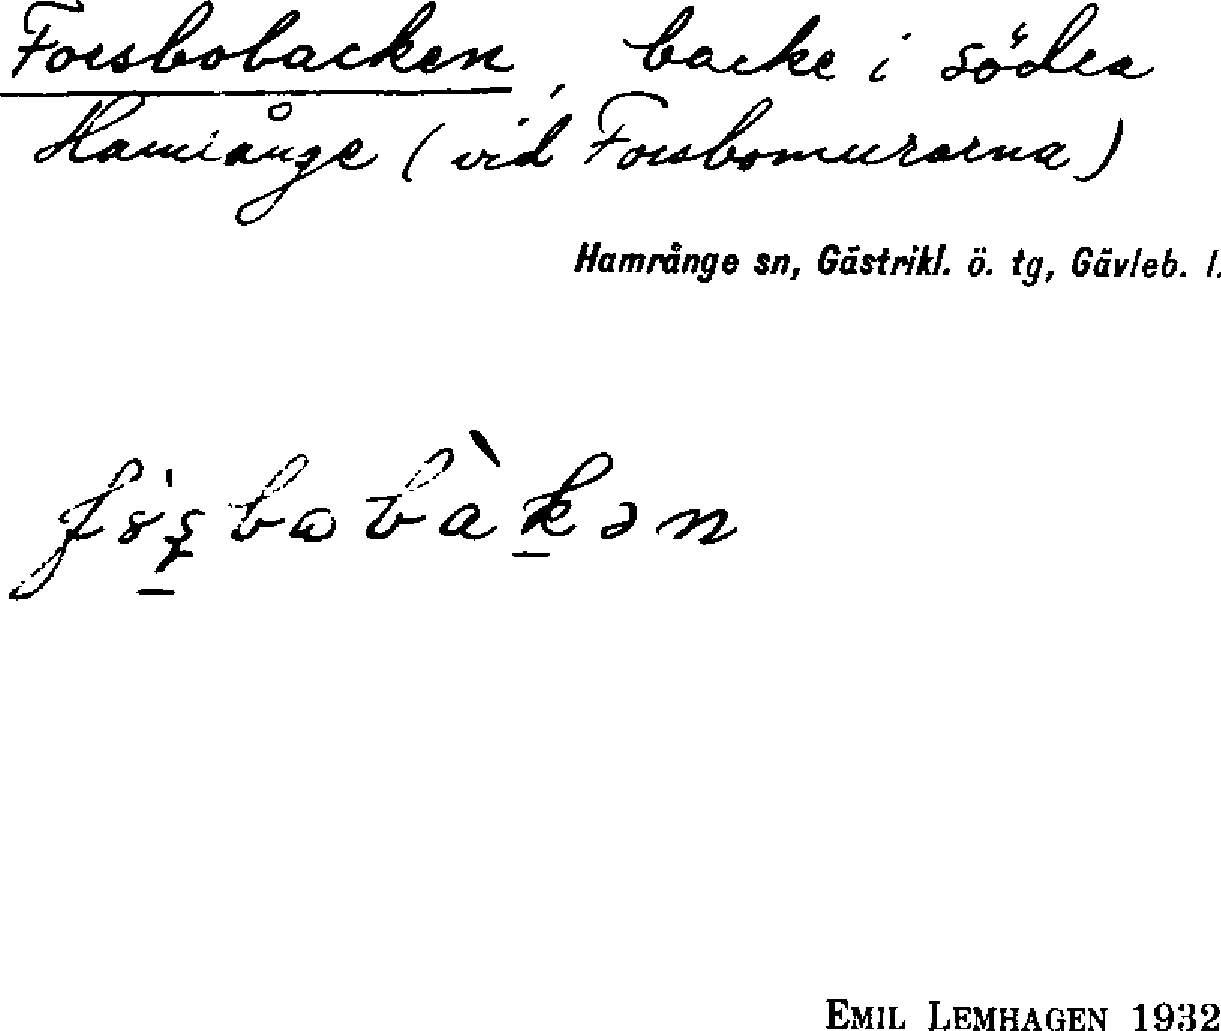 Forsbobacken, backe i södra
Hamrånge (vid Forsbomurarna)
Hamrånge sn, Gästrikl. ö. tg, Gävleb. l.
EMIL LEMHAGEN 1932